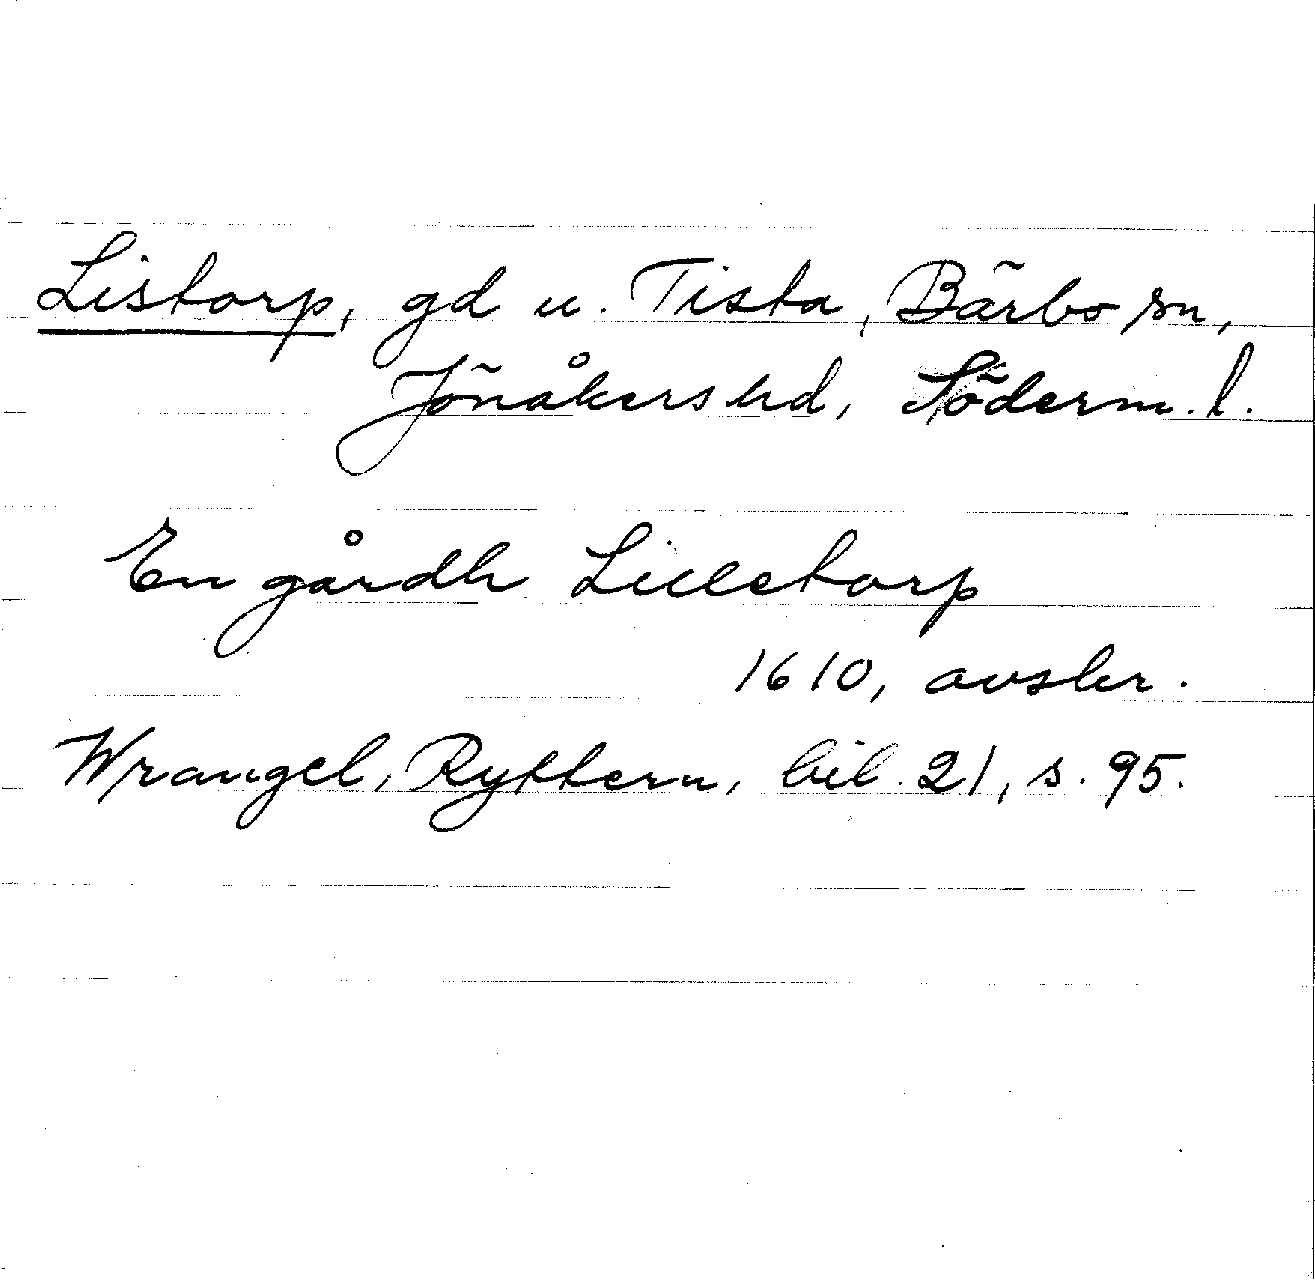 Listorp, gd u. Tista, Bärbo sn,
Jönåkers hd, Söderm. l.
En gårdh Lilletorp
1610, avskr.
Wrangel, Ryttern, bil. 21, s. 95.